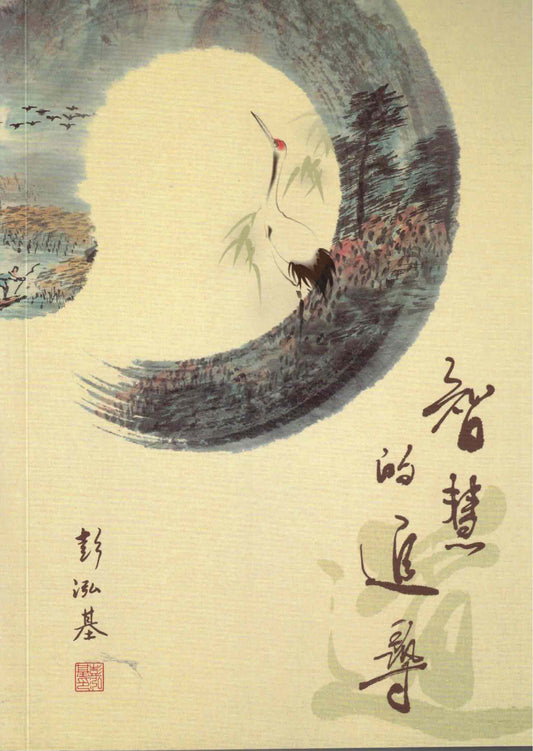 智慧
的追尋
道
彭泓基